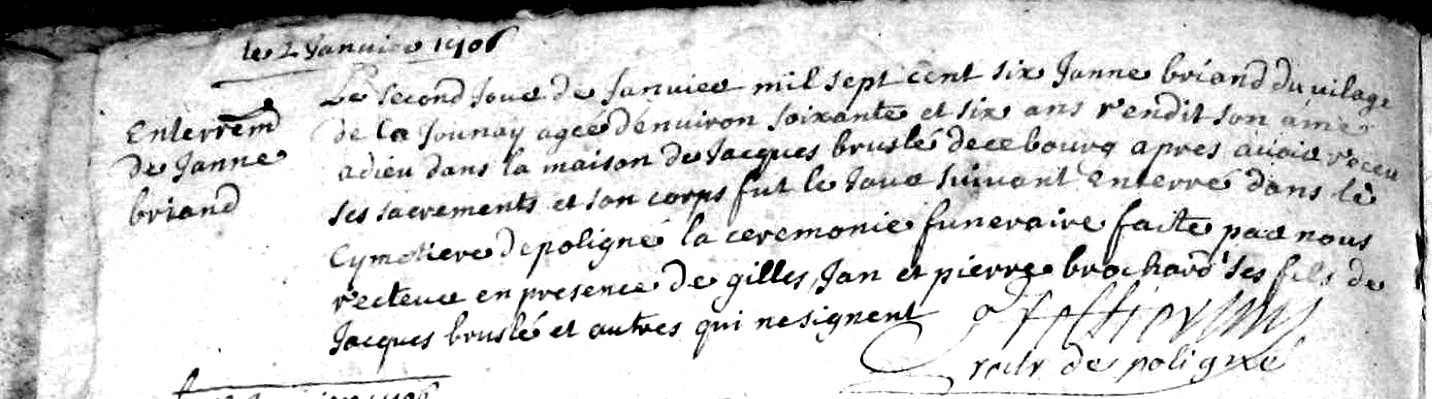 le 2 Janvier 1706
Le second jour de Janvier mil sept cent six Janne briand du vilage
Enterrem
de Janne
briand
de la Jounay agée d'environ soixante et six ans rendit son ame
a dieu dans la maison de Jacques bruslé de ce bourg apres avoir receu
ses sacrements et son corps fut le jour suivant enterré dans le
Cymetiere de poligné la ceremonie funeraire faite par nous
recteur en presence de gilles, Jan et pierre brochard ses fils de
Jacques bruslé et autres qui ne signent
rectr de poligné